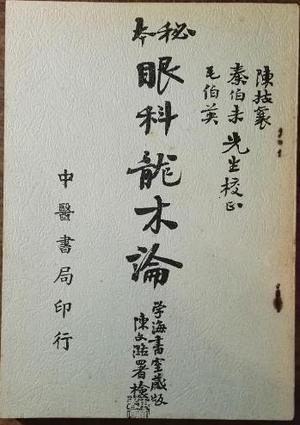 陳拔羣
秦伯未 先生校正
毛伯英
秘本
眼科龍木論
学海書室藏版
陳文㳒署檢
中醫書局印行